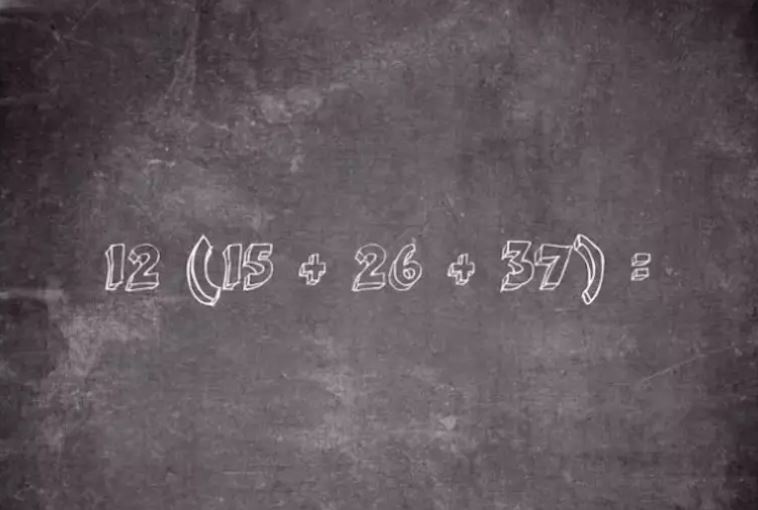 12 (15 + 26 + 37) =